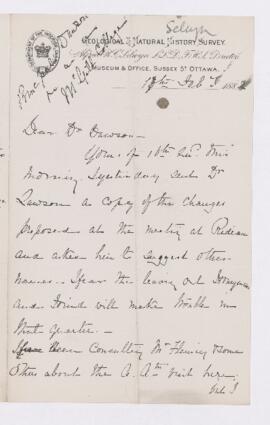 Selwyn
GEOLOGICAL & NATURAL HISTORY SURVEY.
Alfred R.C. Selwyn LL.D. F.R.S. Director
MUSEUM & OFFICE, SUSSEX ST OTTAWA.
Princ. Dawson
McGill College
17th Feb 188
Dear Dr Dawson
Yours of 16th rec. this
morning. I yesterday sent Dr
Lawson a copy of the changes
proposed at the meeting at
and asked him to suggest other
names. I fear the leaving out Honeyman
and Hind will make trouble in
that quarter.
Consulting Mr Fleming & some
others about the A. Assn visit here.